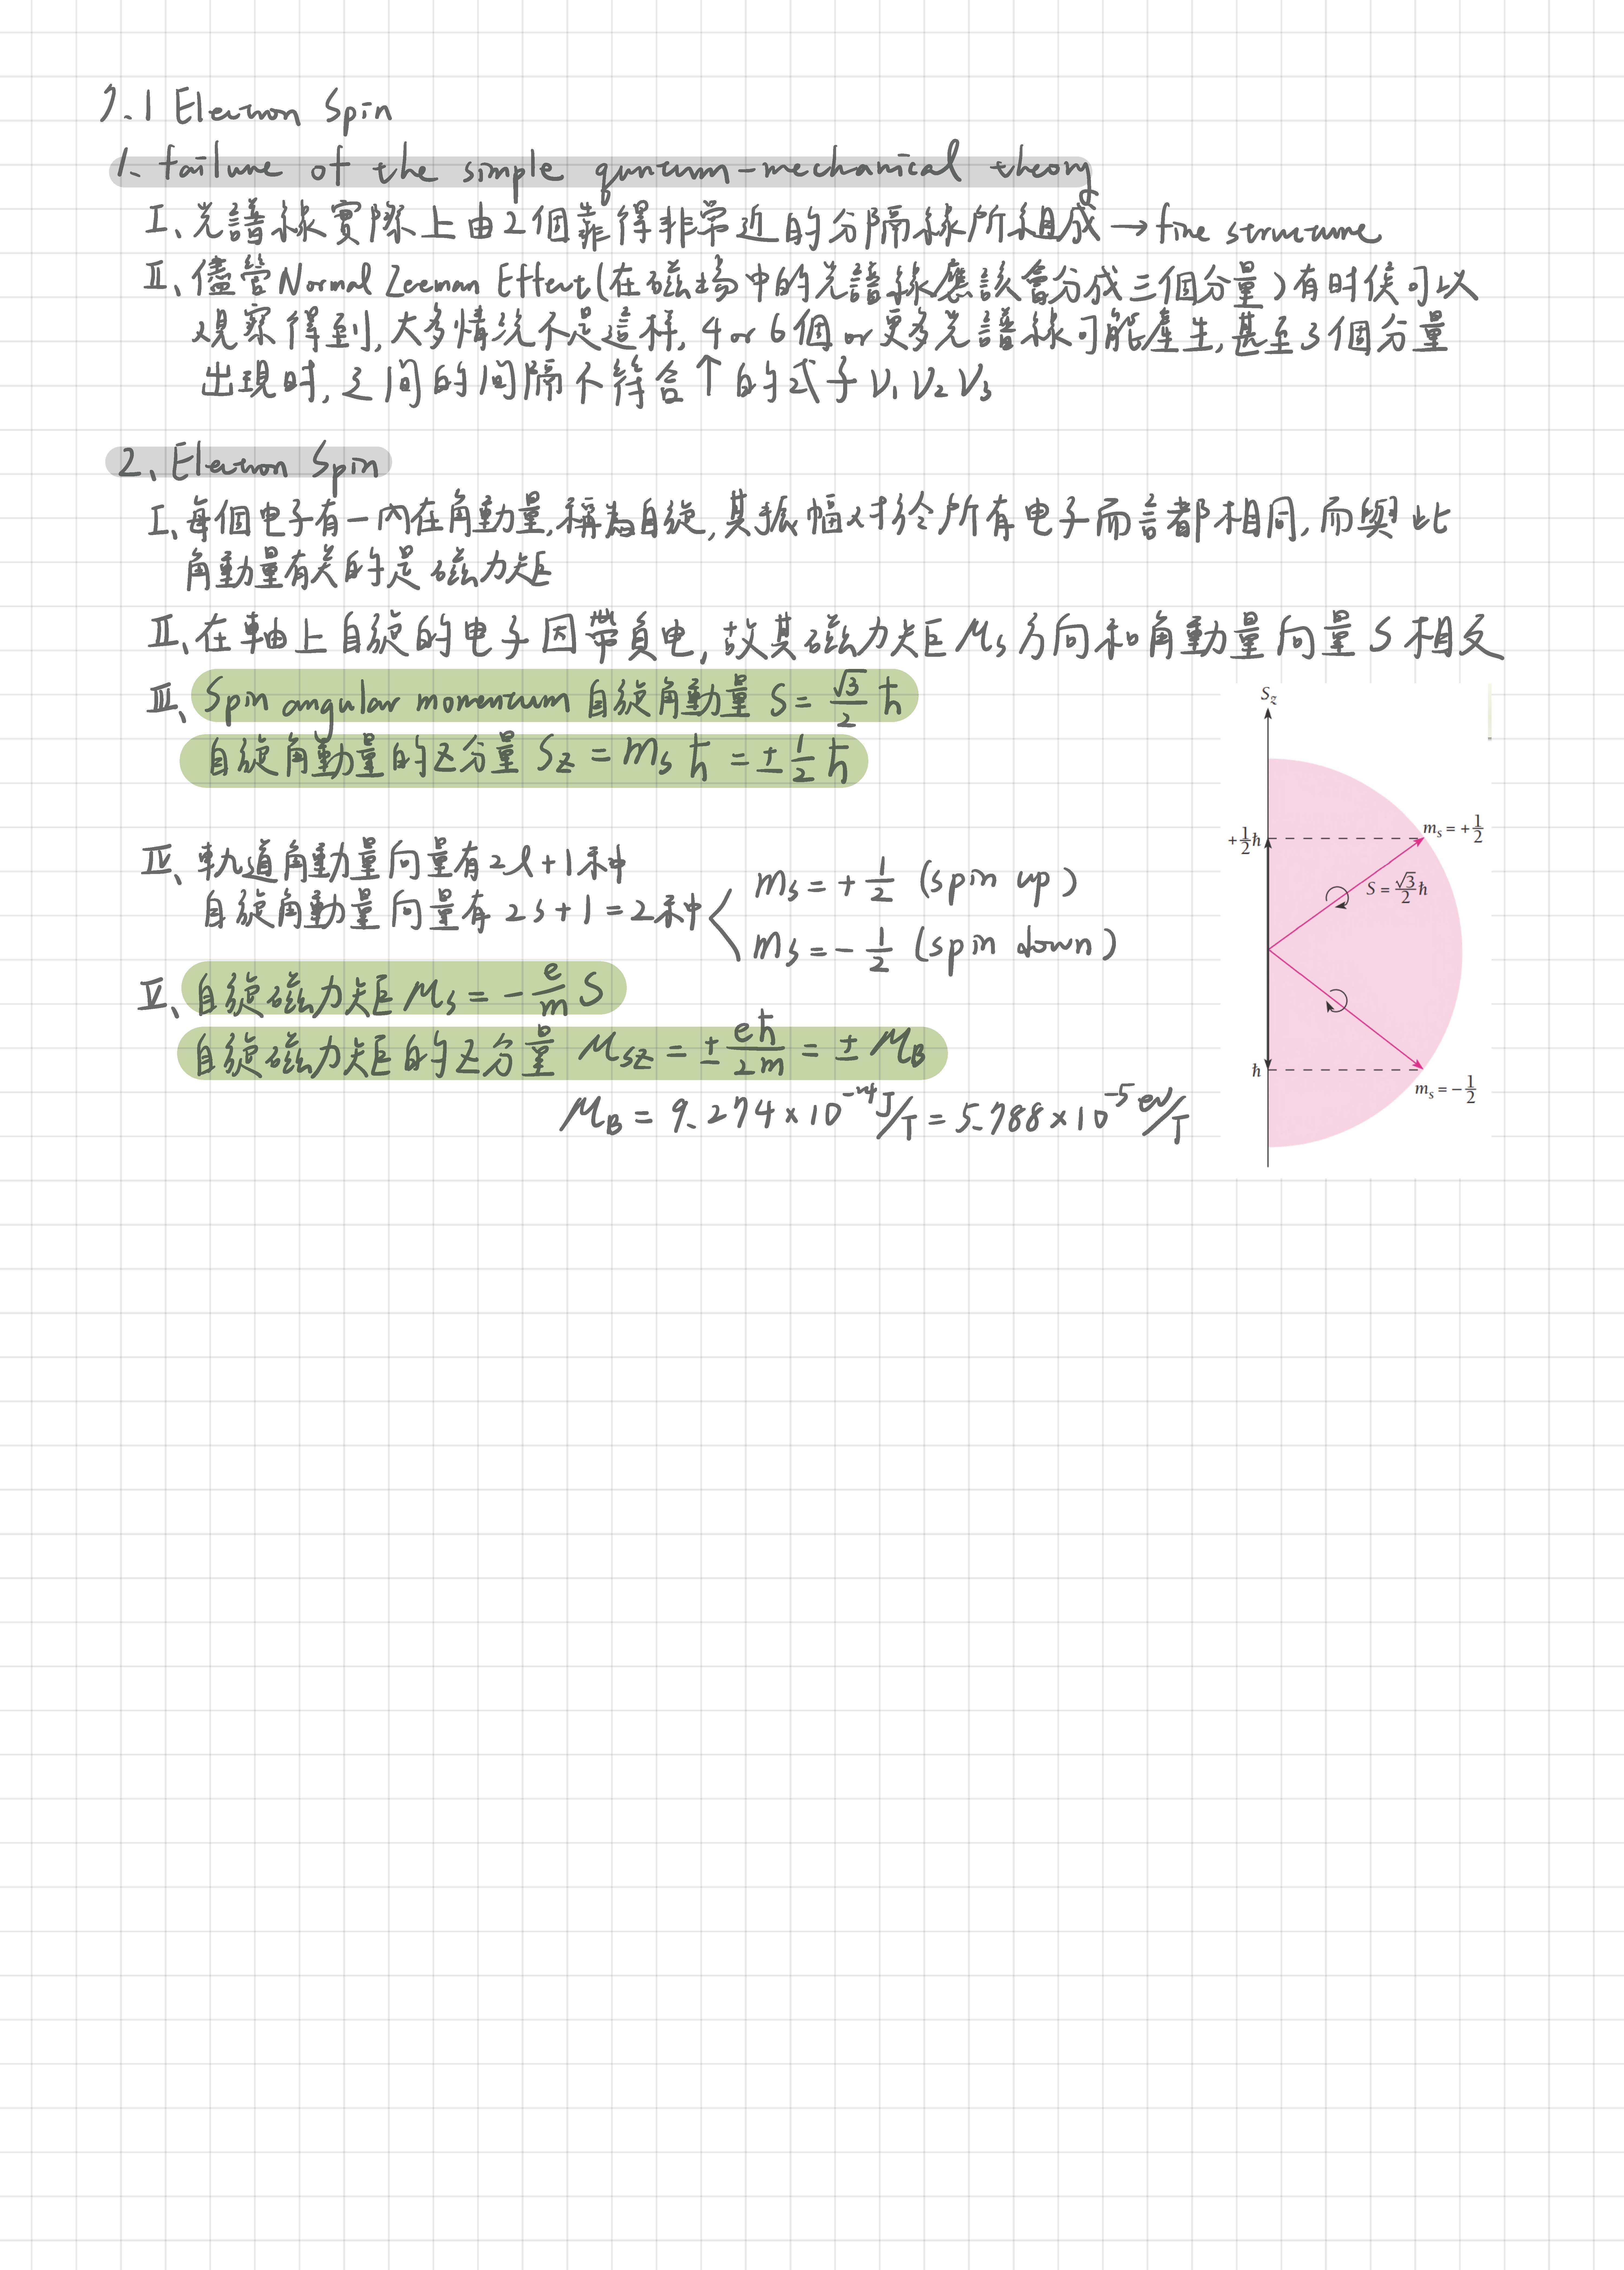 7.1 Electron Spin
1. failure of the simple quntum-mechanical theory
I、光譜線實際上由2個靠得非常近的分隔線所組成→fine structure
II、儘管Normal Zeeman Effect(在磁场中的光譜線應該會分成三個分量)有时侯可以
观察得到,大多情況不是這样,4 or 6個or更多光譜線可能產生,甚至3個分量
出現时,之间的间隔不符合↑的式子 ν₁ ν₂ ν₃
2、Electron Spin
I、每個电子有一內在角動量,稱為自旋,其振幅对於所有电子而言都相同,而與此
角動量有关的是磁力矩
II、在軸上自旋的电子因帶負电,故其磁力矩μs方向和角動量向量S相反
III、Spin angular momentum 自旋角動量 S = √3/2 ħ
自旋角動量的z分量 Sz = ms ħ = ±1/2 ħ
IV、軌道角動量向量有2l+1种
自旋角動量向量有 2s+1=2种
ms = +1/2 (spin up)
ms = -1/2 (spin down)
V、自旋磁力矩 μs = -e/m S
自旋磁力矩的z分量 μsz = ±eħ/2m = ±μB
μB = 9.274×10⁻²⁴ J/T = 5.788×10⁻⁵ eV/T
Sz
+1/2ħ
ms = +1/2
S = √3/2 ħ
ħ
ms = −1/2